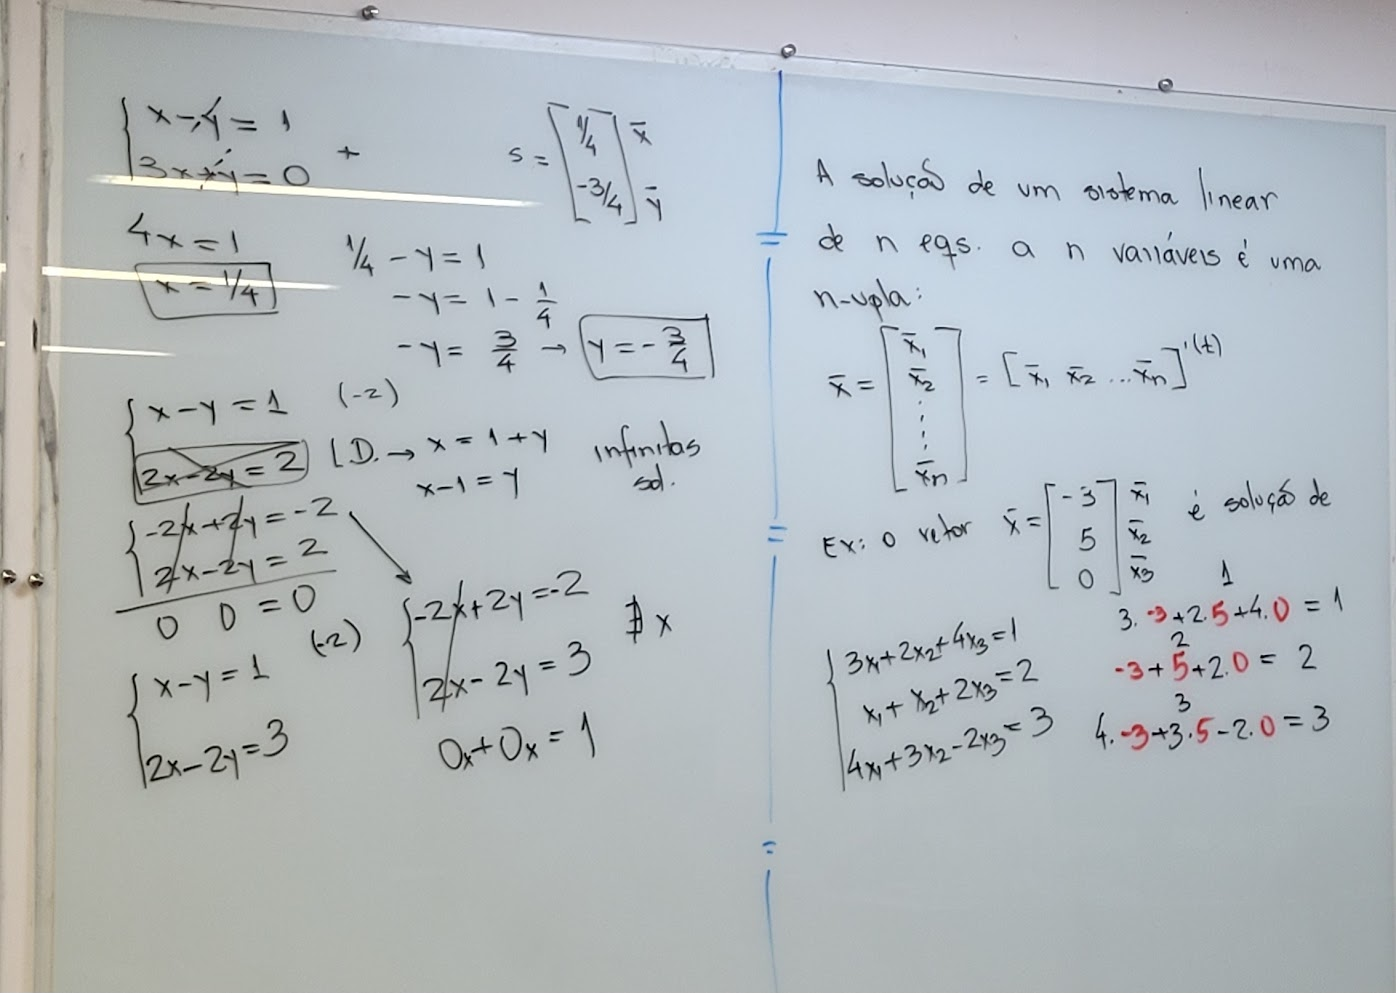 x - y = 1
3x + y = 0
+
4x = 1
x = 1/4
s = [1/4 -3/4] x̄ ȳ
1/4 - y = 1
-y = 1 - 1/4
-y = 3/4 → y = -3/4
x - y = 1 (-2)
2x - 2y = 2
L.D. → x = 1 + y
x - 1 = y
infinitas
sol.
-2x + 2y = -2
2x - 2y = 2
0 0 = 0
x - y = 1 (-2)
2x - 2y = 3
-2x + 2y = -2
2x - 2y = 3
∄ x
0x + 0x = 1
A solução de um sistema linear
de n eqs. a n variáveis é uma
n-upla:
x̄ = [x̄₁ x̄₂ ⋮ x̄n] = [x̄₁ x̄₂ ... x̄n]'(t)
Ex: o vetor x̄ = [-3 5 0] x̄₁ x̄₂ x̄₃ é solução de
3x₁ + 2x₂ + 4x₃ = 1
x₁ + x₂ + 2x₃ = 2
4x₁ + 3x₂ - 2x₃ = 3
1
3. -3 + 2.5 + 4.0 = 1
2
-3 + 5 + 2.0 = 2
3
4. -3 + 3.5 - 2.0 = 3